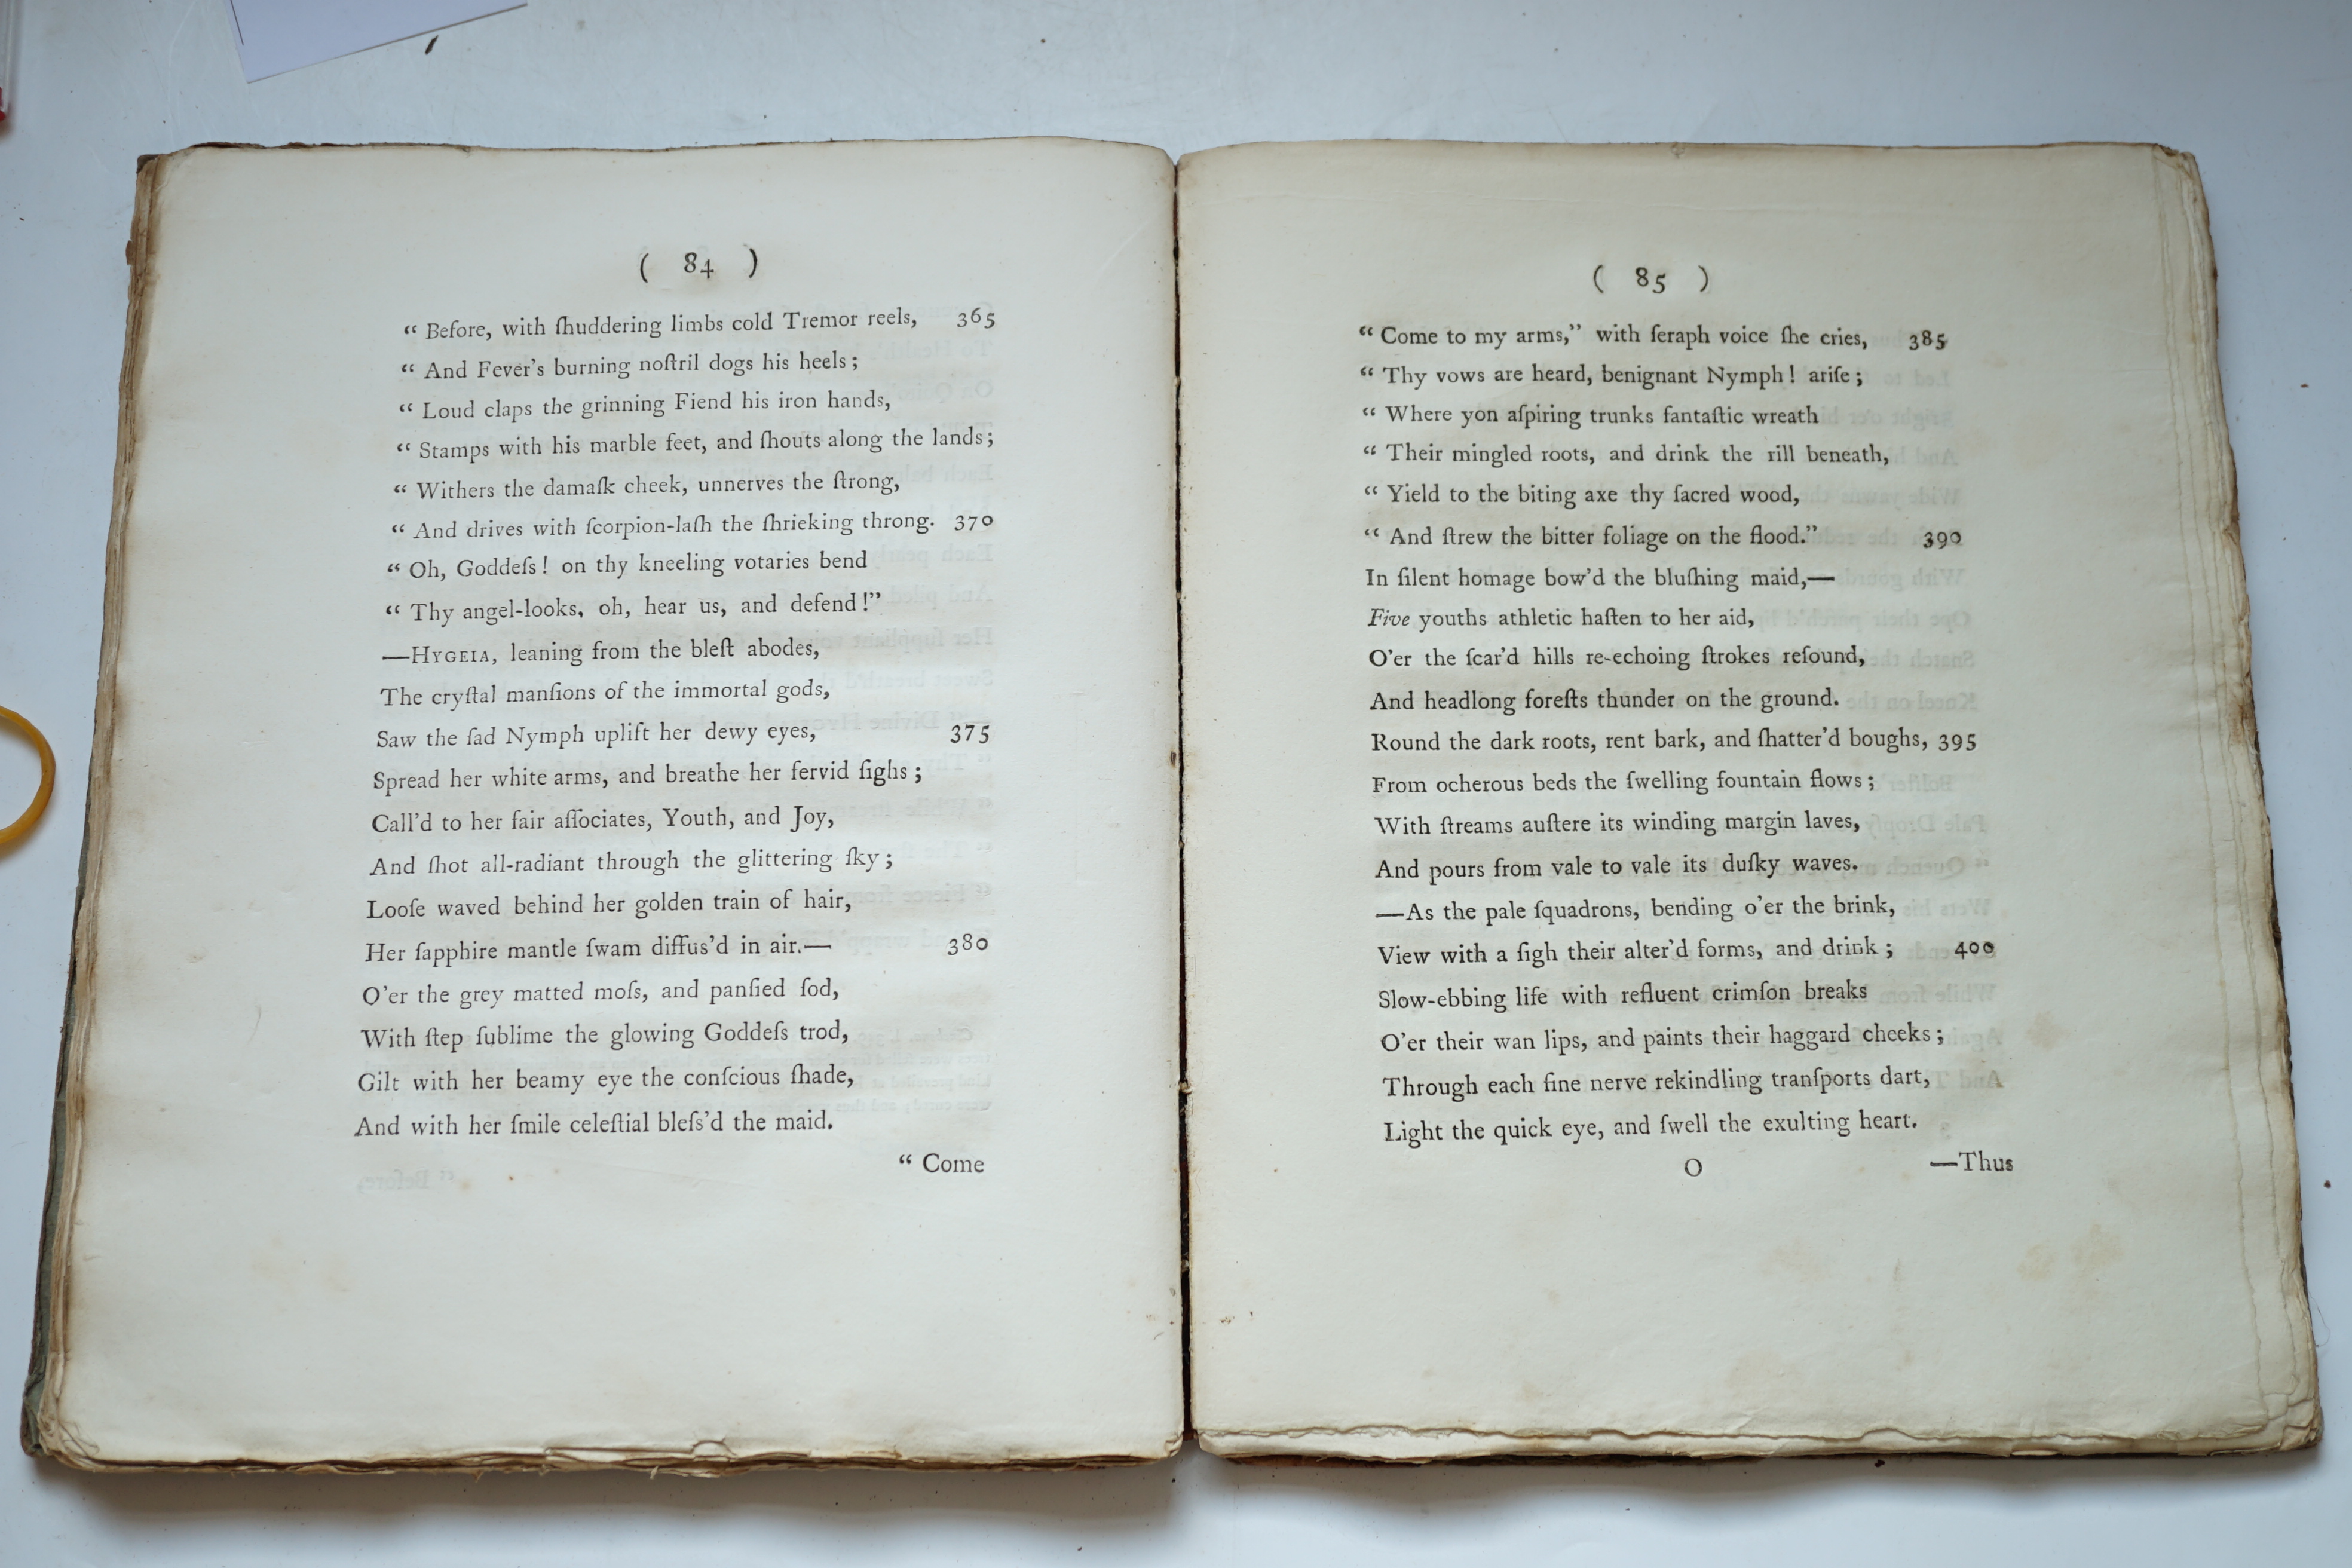 ( 84 )
“ Before, with ſhuddering limbs cold Tremor reels, 365
“ And Fever's burning noſtril dogs his heels ;
“ Loud claps the grinning Fiend his iron hands,
“ Stamps with his marble feet, and ſhouts along the lands ;
“ Withers the damaſk cheek, unnerves the ſtrong,
“ And drives with ſcorpion-laſh the ſhrieking throng. 370
“ Oh, Goddeſs ! on thy kneeling votaries bend
“ Thy angel-looks, oh, hear us, and defend !”
—HYGEIA, leaning from the bleſt abodes,
The cryſtal manſions of the immortal gods,
Saw the ſad Nymph uplift her dewy eyes, 375
Spread her white arms, and breathe her fervid ſighs ;
Call'd to her fair aſſociates, Youth, and Joy,
And ſhot all-radiant through the glittering ſky ;
Looſe waved behind her golden train of hair,
Her ſapphire mantle ſwam diffus'd in air.— 380
O'er the grey matted moſs, and panſied ſod,
With ſtep ſublime the glowing Goddeſs trod,
Gilt with her beamy eye the conſcious ſhade,
And with her ſmile celeſtial bleſs'd the maid.
“ Come
( 85 )
“ Come to my arms,” with ſeraph voice ſhe cries, 385
“ Thy vows are heard, benignant Nymph ! ariſe ;
“ Where yon aſpiring trunks fantaſtic wreath
“ Their mingled roots, and drink the rill beneath,
“ Yield to the biting axe thy ſacred wood,
“ And ſtrew the bitter foliage on the flood.” 390
In ſilent homage bow'd the bluſhing maid,—
Five youths athletic haſten to her aid,
O'er the ſcar'd hills re-echoing ſtrokes reſound,
And headlong foreſts thunder on the ground.
Round the dark roots, rent bark, and ſhatter'd boughs, 395
From ocherous beds the ſwelling fountain flows ;
With ſtreams auſtere its winding margin laves,
And pours from vale to vale its duſky waves.
—As the pale ſquadrons, bending o'er the brink,
View with a ſigh their alter'd forms, and drink ; 400
Slow-ebbing life with refluent crimſon breaks
O'er their wan lips, and paints their haggard cheeks ;
Through each fine nerve rekindling tranſports dart,
Light the quick eye, and ſwell the exulting heart.
O —Thus